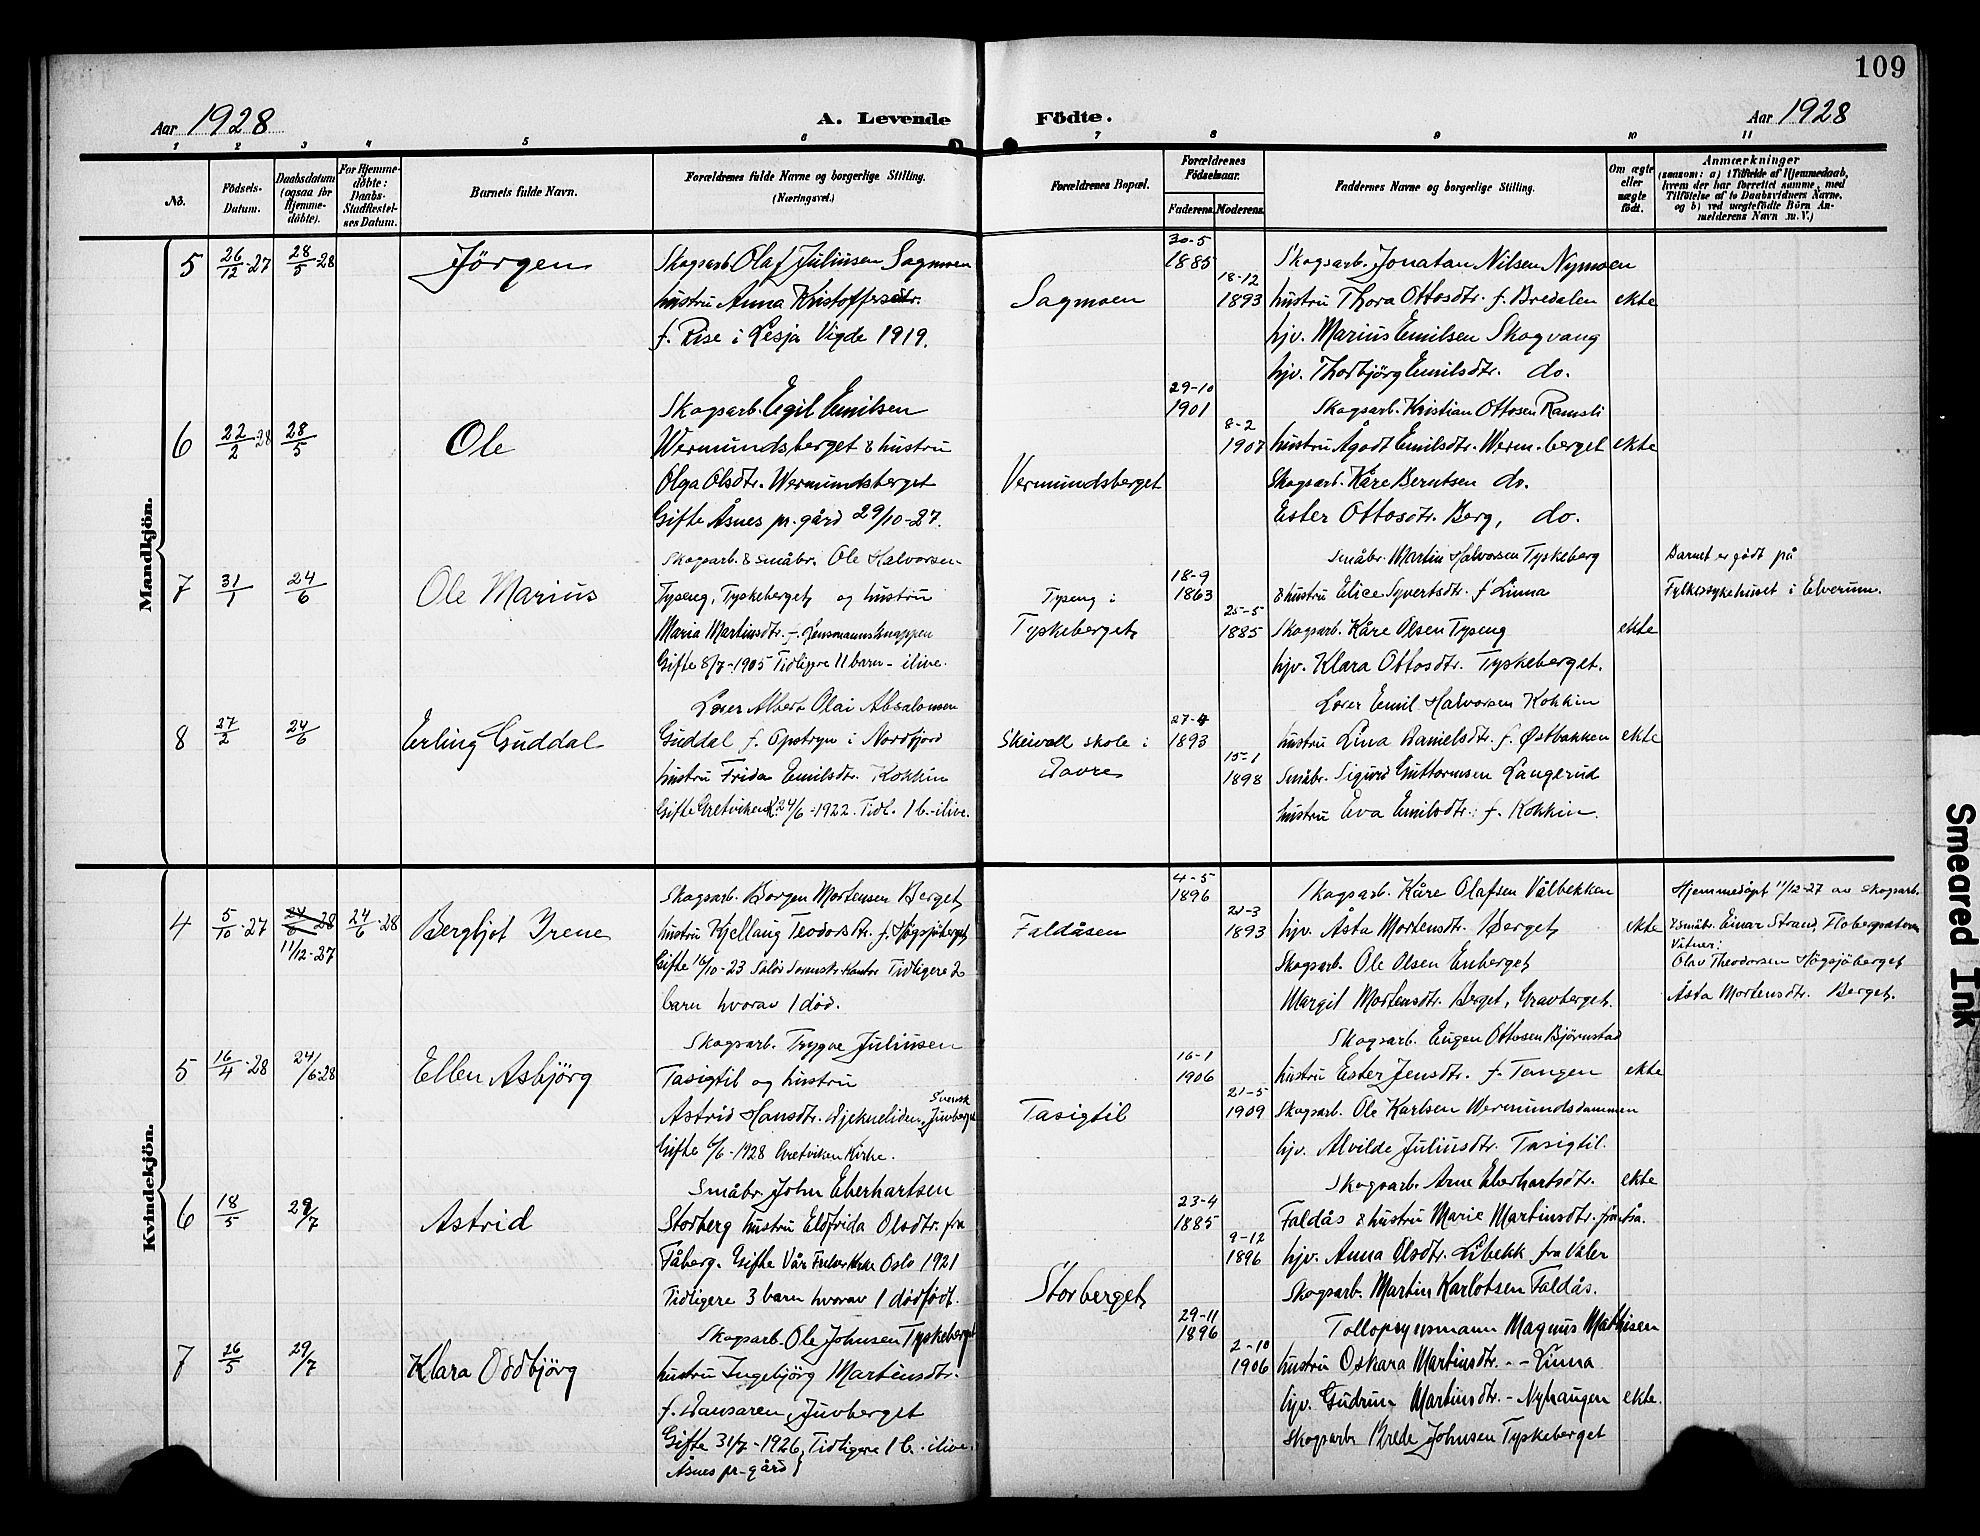 109
Aar 1928 A. Levende Födte. Aar 1928
1 2 3 4 5 6 7 8 9 10 11
No.
Födsels-Datum.
Daabsdatum (ogsaa for Hjemmedöbte).
For Hjemmedöbte: Daabs-Stadfæstelses Datum.
Barnets fulde Navn.
Forældrenes fulde Navne og borgerlige Stilling.
(Næringsvei.)
Forældrenes Bopæl.
Forældrenes Födselsaar.
Faderens. Moderens.
Faddernes Navne og borgerlige Stilling.
Om ægte eller uægte födt.
Anmærkninger
(saasom: a) i Tilfælde af Hjemmedaab,
hvem der har forrettet samme, med
Tilföielse af to Daabsvidners Navne,
og b) ved uægtefödte Börn An-
melderens Navn m. V.)
Mandkjön.
5 26/12-27 28/5-28 Jörgen
Skogsarb. Olaf Juliussen Sagmoen
hustru Anna Kristoffersdtr.
f. Rise i Lesja Vigde 1919.
Sagmoen
30-5
1885
18-12
1893
Skogsarb. Jonatan Nilsen Nymoen
hustru Thora Ottosdtr. f. Bredalen ekte
hjv. Marius Emilsen Skogvang
hjv. Thorbjörg Emilsdtr. do.
6 22/2-28 28/5 Ole
Skogsarb. Egil Emilsen
Wermundsberget & hustru
Olga Olsdtr. Wermundsberget
Gifte Åsnes pr.gård 29/10-27.
Vermundsberget
29-10
1901
8-2
1907
Skogsarb. Kristian Ottosen Ramsli
hustru Ågodt Emilsdtr. Werm.berget ekte
Skogsarb. Kåre Berntsen do.
Ester Ottosdtr. Berg, do.
7 31/1 24/6 Ole Marius
Skogsarb. & småbr. Ole Halvorsen
Tyseng, Tyskeberget og hustru
Maria Martinsdtr. f. Jensmannsknappen
Gifte 8/7-1905 Tidligere 11 barn - ilive.
Tyseng i
Tyskeberget
18-9
1863
25-5
1885
Småbr. Martin Halvorsen Tyskeberg
& hustru Elice Syvertsdtr. f. Linna
Skogsarb. Kåre Olsen Tyseng ekte
hjv. Klara Ottosdtr. Tyskeberget.
Barnet er födt på
Fylkessykehuset i Elverum.
8 27/2 24/6 Erling Guddal
Lærer Albert Olai Absalonsen
Guddal f. Opstryn i Nordfjord
hustru Frida Emilsdtr. Kokkin
Gifte Gretviken K. 24/6-1922. Tidl. 1 b.-ilive.
Skivoll skole i
Dovre
27-4
1893
15-1
1898
Lærer Emil Halvorsen Kokkin
hustru Lina Danielsdtr. f. Østbakken ekte
Småbr. Sigurd Guttormsen Langerud
hustru Eva Emilsdtr: f. Kokkin.
Kvindekjön.
4 5/10-27 24/6-28 11/12-27 24/6-28 Bergljot Irene
Skogsarb. Borgen Mortensen Berget
hustru Kjellaug Teodorsdtr. f. Högsjöberget
Gifte 16/10-23 Solör Sorenskr.kontor Tidligere 2
barn hvorav 1 död.
Faldåsen
4-5
1896
21-3
1893
Skogsarb. Kåre Olafsen Vålbekken
hjv. Åsta Mortensdtr. Berget ekte
Skogsarb. Ole Olsen Enberget
Margit Mortensdtr. Berget, Gravberget.
Hjemmedöpt 11/12-27 av skogsarb.
& småbr. Einar Strand, Flobergsæteren
Vitner:
Olav Theodorsen Högsjöberget
Åsta Mortensdtr. Berget.
5 16/4-28 24/6-28 Ellen Asbjörg
Skogsarb. Trygve Juliussen
Tasigtil og hustru
Svensk
Astrid Hansdtr. Bjekneliden, Juvberget
Gifte 6/6-1928 Gretviken Kirke.
Tasigtil
16-1
1906
21-5
1909
Skogsarb. Eugen Ottosen Björnstad
hustru Ester Jensdtr. f. Tangen ekte
Skogsarb. Ole Karlsen Wermundsdammen
hjv. Alvilde Juliusdtr. Tasigtil.
6 18/5 29/7 Astrid
Småbr. John Eberhartsen
Storberg hustru Eldfrida Olsdtr. fra
Fåberg. Gifte Vår Frelser Kirke Oslo 1921
Tidligere 3 barn hvorav 1 dödfödt.
Storberget
23-4
1885
9-12
1896
Skogsarb. Arne Eberhartsdtr. ekte
Faldås & hustru Marie Martinsdtr.
hjv. Anna Olsdtr. Libekk fra Våler
Skogsarb. Martin Karlotsen Faldås.
7 26/5 29/7 Klara Oddbjörg
Skogsarb. Ole Johnsen Tyskeberget
hustru Ingebjörg Martinsdtr.
f. Dansaren, Juvberget
Gifte 31/7-1926, Tidligere 1 b.-ilive.
Åsnes pr-gård
29-11
1896
2-10
1906
Tollopsynsmann Magnus Mathisen
hustru Oskara Martinsdtr. -- Linna
hjv. Gudrun Martinsdtr. - Nyhaugen ekte.
Skogsarb. Brede Johnsen Tyskeberget
Smeared Ink